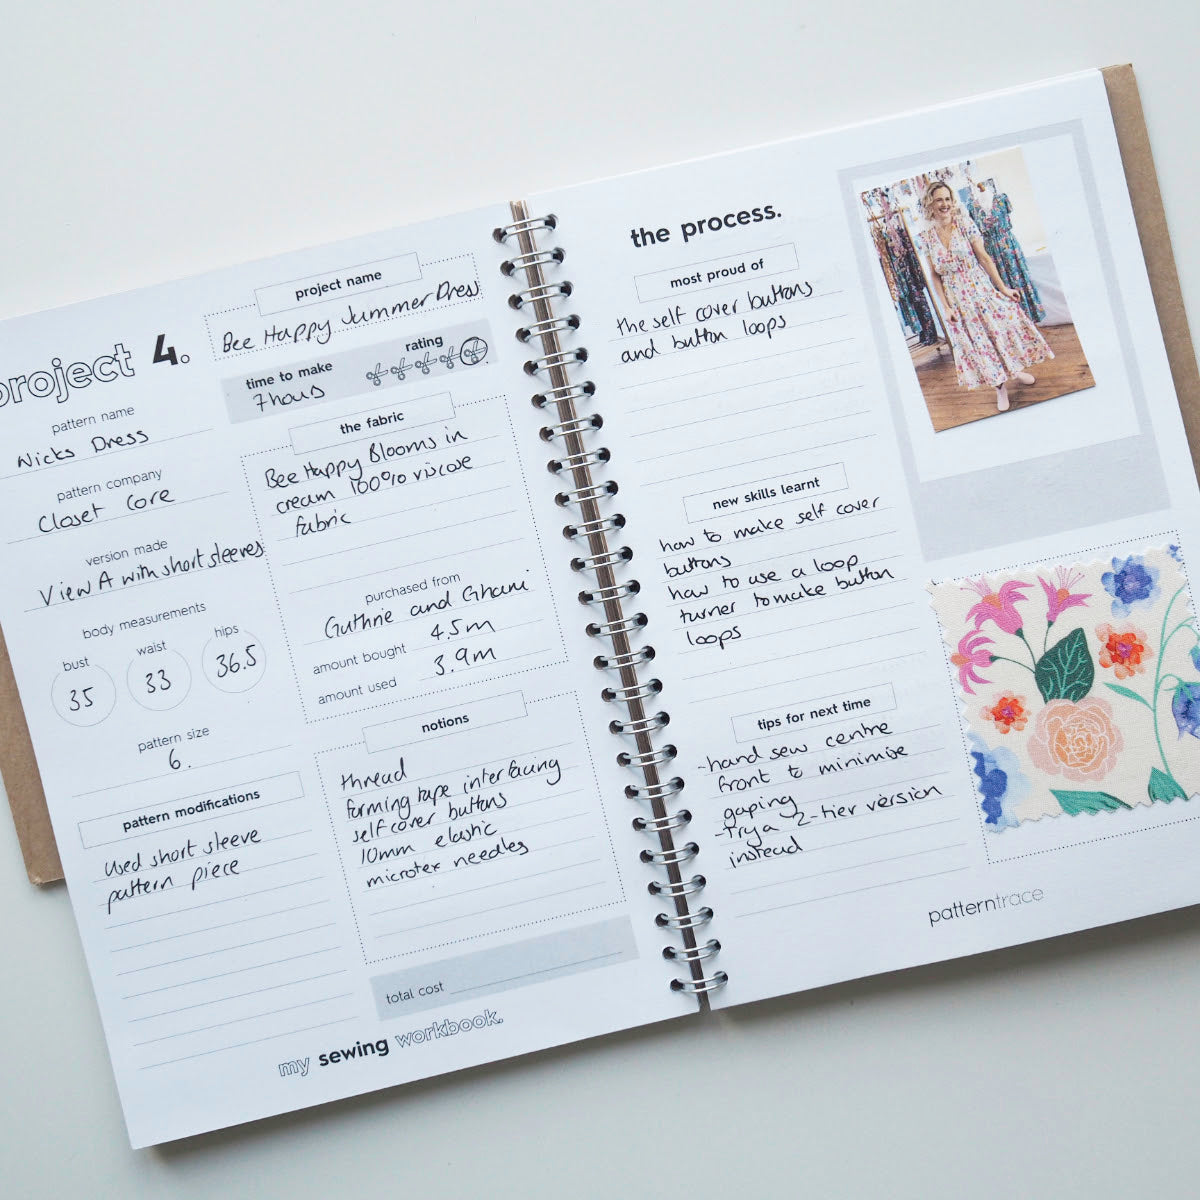 project 4.
project name
Bee Happy Summer Dress
time to make
7 hours
rating
pattern name
Nicks Dress
pattern company
Closet Core
version made
View A with short sleeves
body measurements
bust
waist
hips
35
33
36.5
pattern size
6.
pattern modifications
Used short sleeve
pattern piece
the fabric
Bee Happy Blooms in
cream 100% viscose
fabric
purchased from
Guthrie and Ghani
amount bought 4.5m
amount used 3.9m
notions
thread
forming tape interfacing
self cover buttons
10mm elastic
microtex needles
total cost
my sewing workbook.
the process.
most proud of
the self cover buttons
and button loops
new skills learnt
how to make self cover
buttons
how to use a loop
turner to make button
loops
tips for next time
-hand sew centre
front to minimise
gaping
-try a 2-tier version
instead
patterntrace